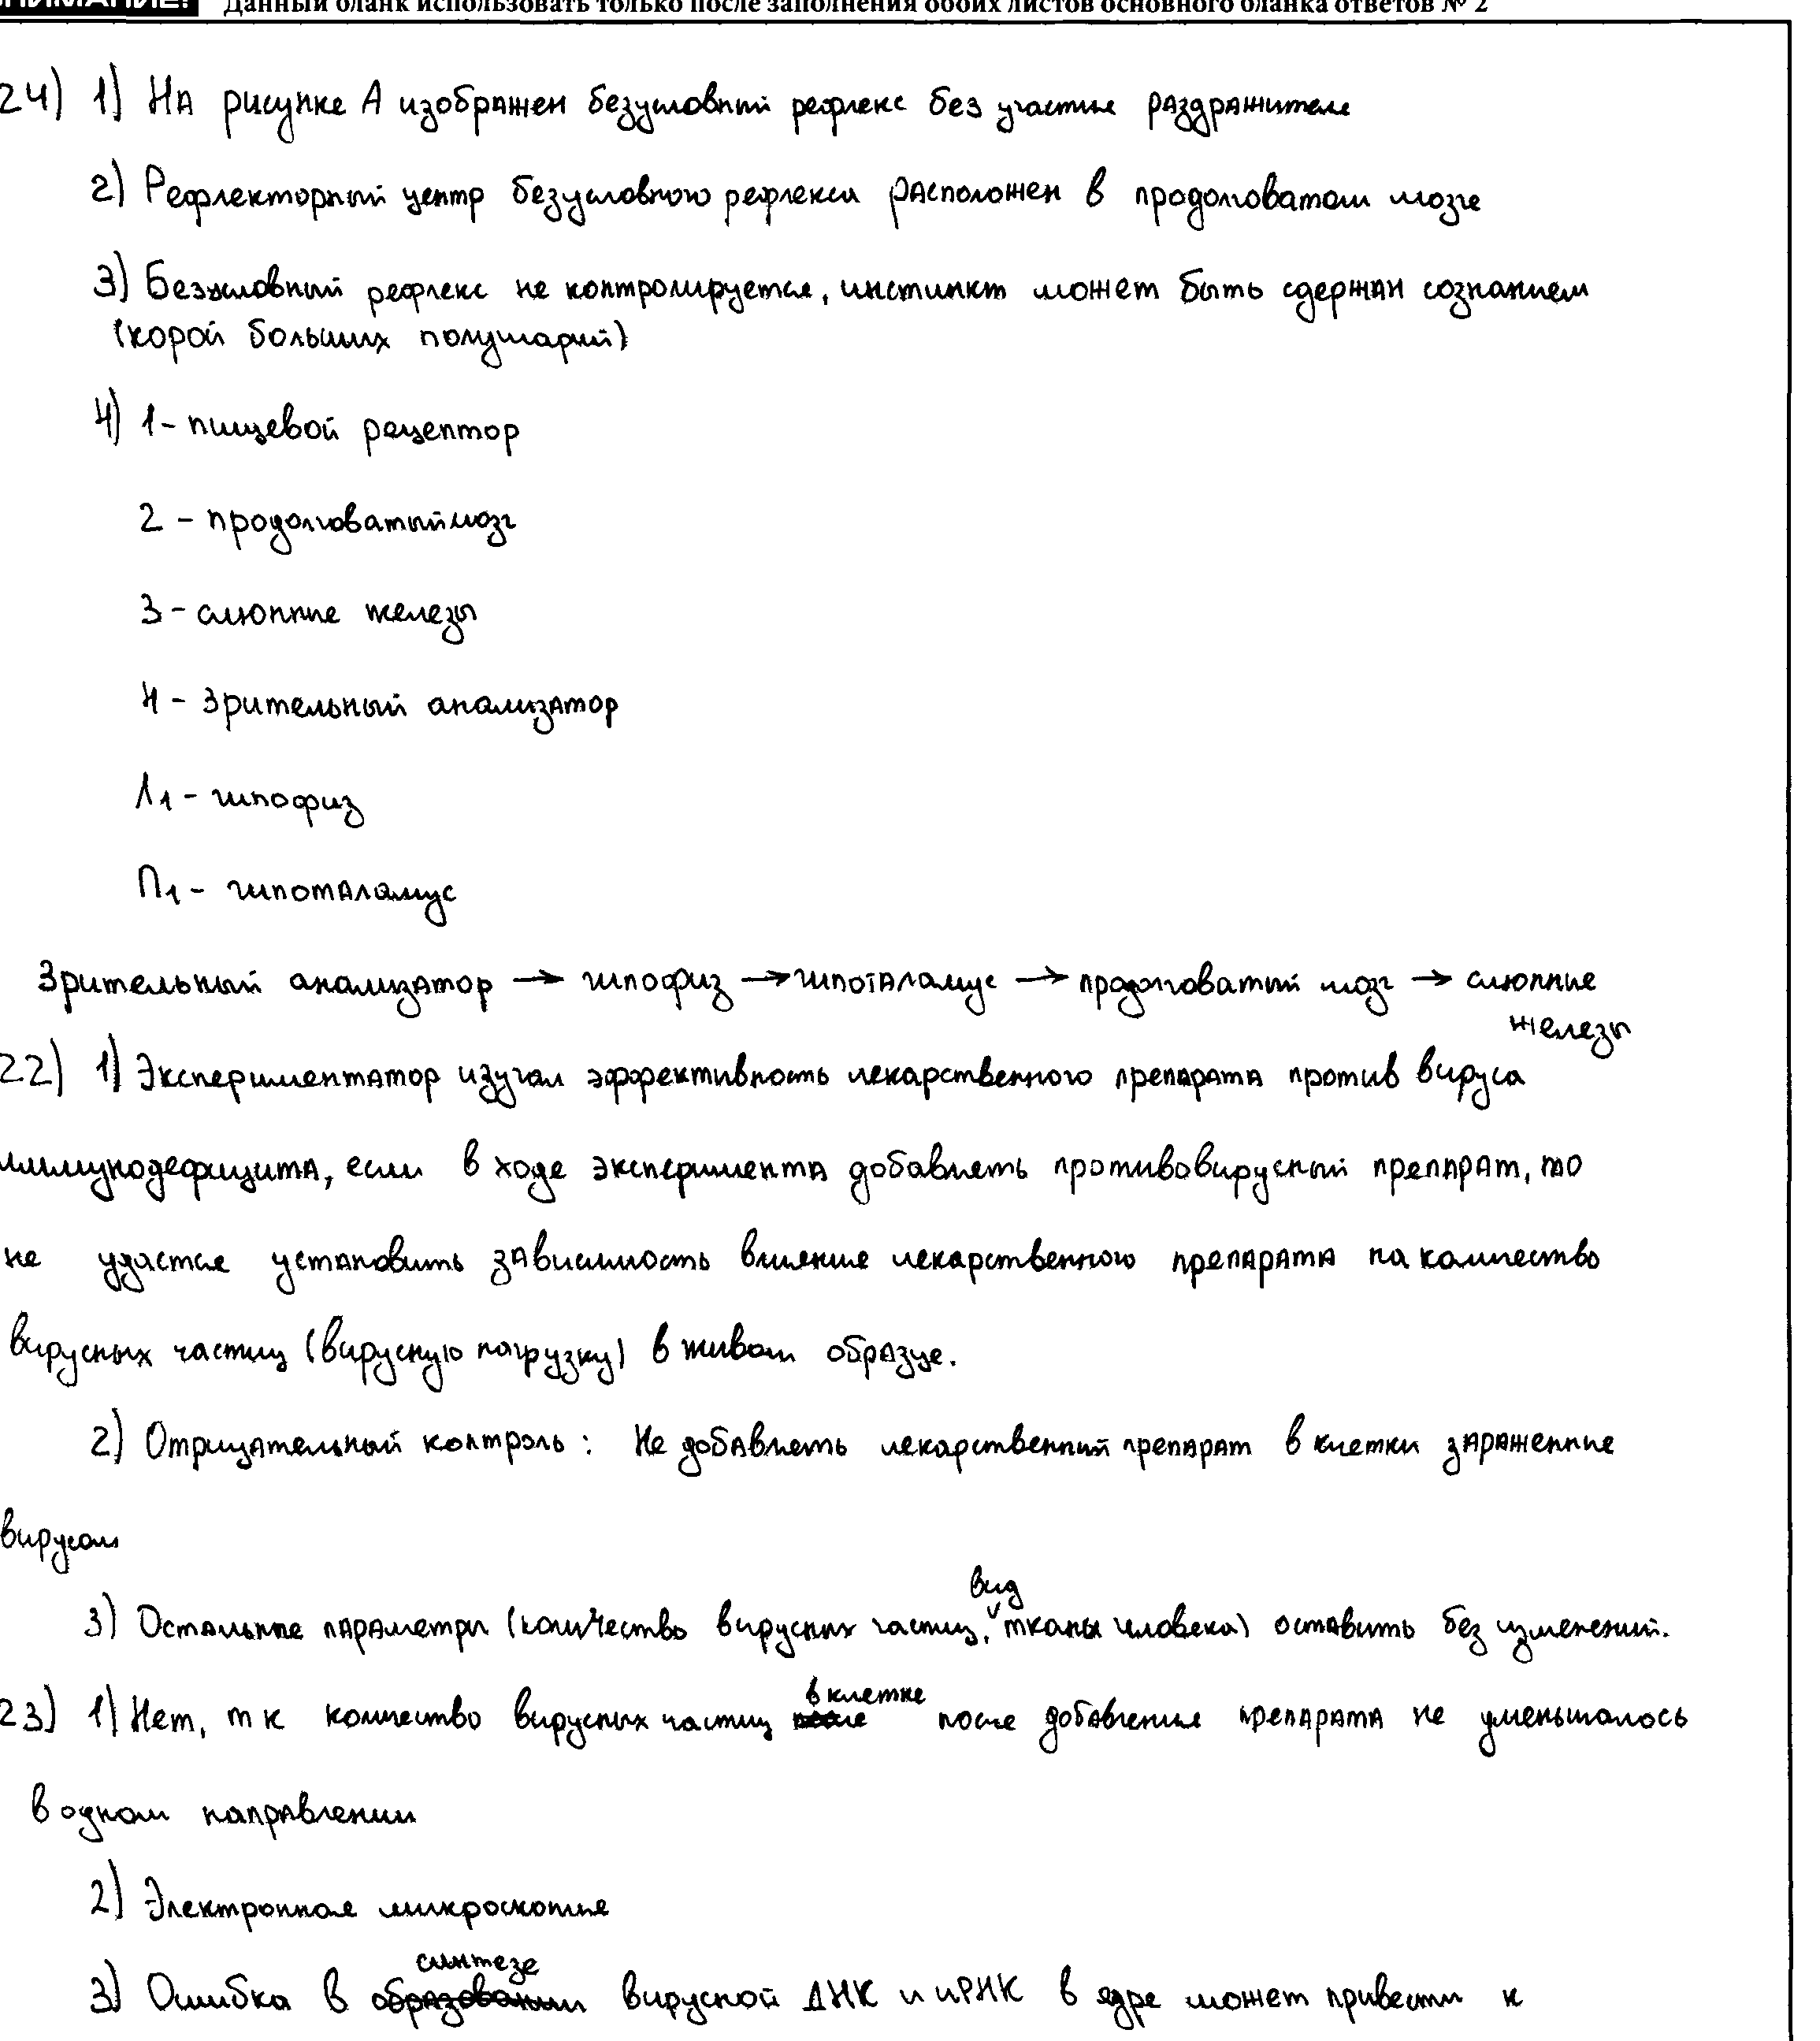 ВНИМАНИЕ! Данный бланк использовать только после заполнения обоих листов основного бланка ответов № 2
24) 1) На рисунке А изображен безусловный рефлекс без участия раздражителя
2) Рефлекторный центр безусловного рефлекса расположен в продолговатом мозге
3) Безусловный рефлекс не контролируется, инстинкт может быть сдержан сознанием
(корой больших полушарий)
4) 1 - пищевой рецептор
2 - продолговатый мозг
3 - слюнные железы
4 - зрительный анализатор
Л1 - гипофиз
П1 - гипоталамус
Зрительный анализатор → гипофиз → гипоталамус → продолговатый мозг → слюнные
железы
22) 1) Экспериментатор изучал эффективность лекарственного препарата против вируса
иммунодефицита, если в ходе эксперимента добавлять противовирусный препарат, то
не удастся установить зависимость влияние лекарственного препарата на количество
вирусных частиц (вирусную нагрузку) в живом образце.
2) Отрицательный контроль: Не добавлять лекарственный препарат в клетки зараженные
вирусом
3) Остальные параметры (количество вирусных частиц, вид ткани человека) оставить без изменений.
23) 1) Нет, т к количество вирусных частиц в клетке после добавления препарата не уменьшалось
в одном направлении
2) Электронная микроскопия
3) Ошибка в синтезе вирусной ДНК и иРНК в ядре может привести к